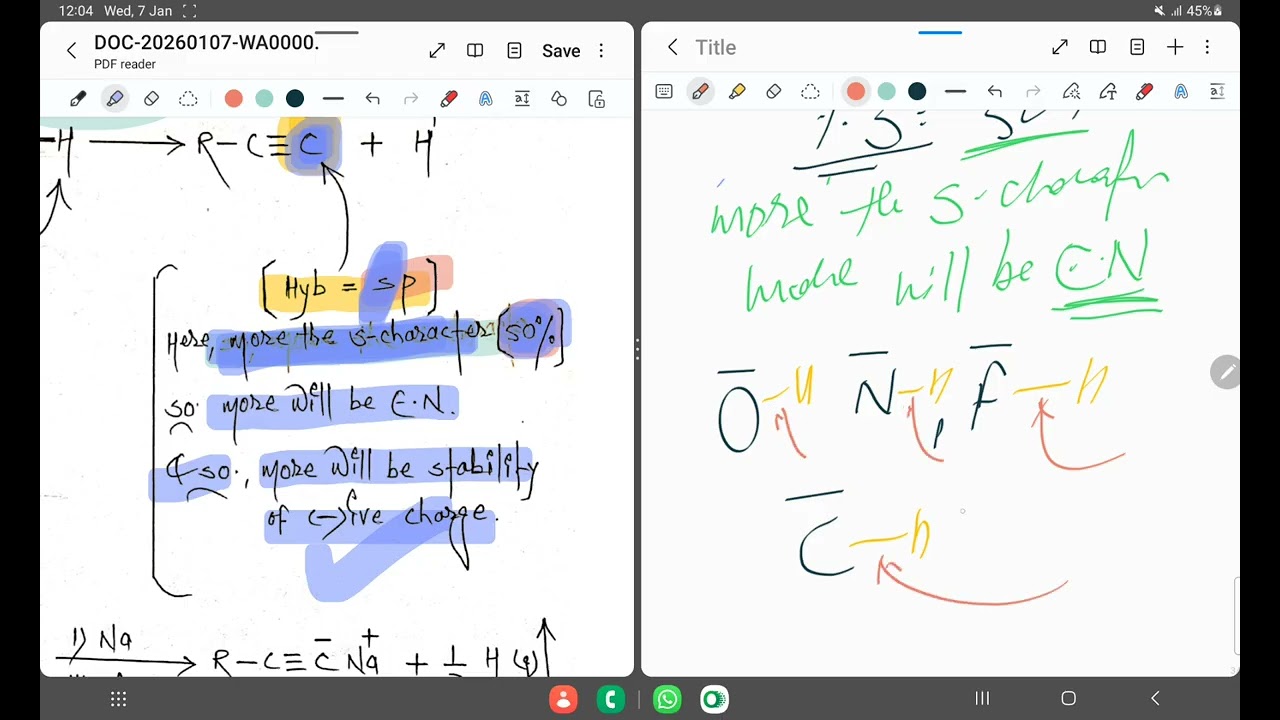 12:04 Wed, 7 Jan
45%
DOC-20260107-WA0000.
PDF reader
Save
-H ⟶ R-C≡C + H
[Hyb = sp]
Here, more the s-character (50%)
so more will be E.N.
& so, more will be stability
of (-)ive charge.
1) Na
⟶ R-C≡C̄ Na⁺ + 1/2 H (g) ↑
Title
% S:
more the s-
more will be E.N
O-H N-H, F-H
C-H